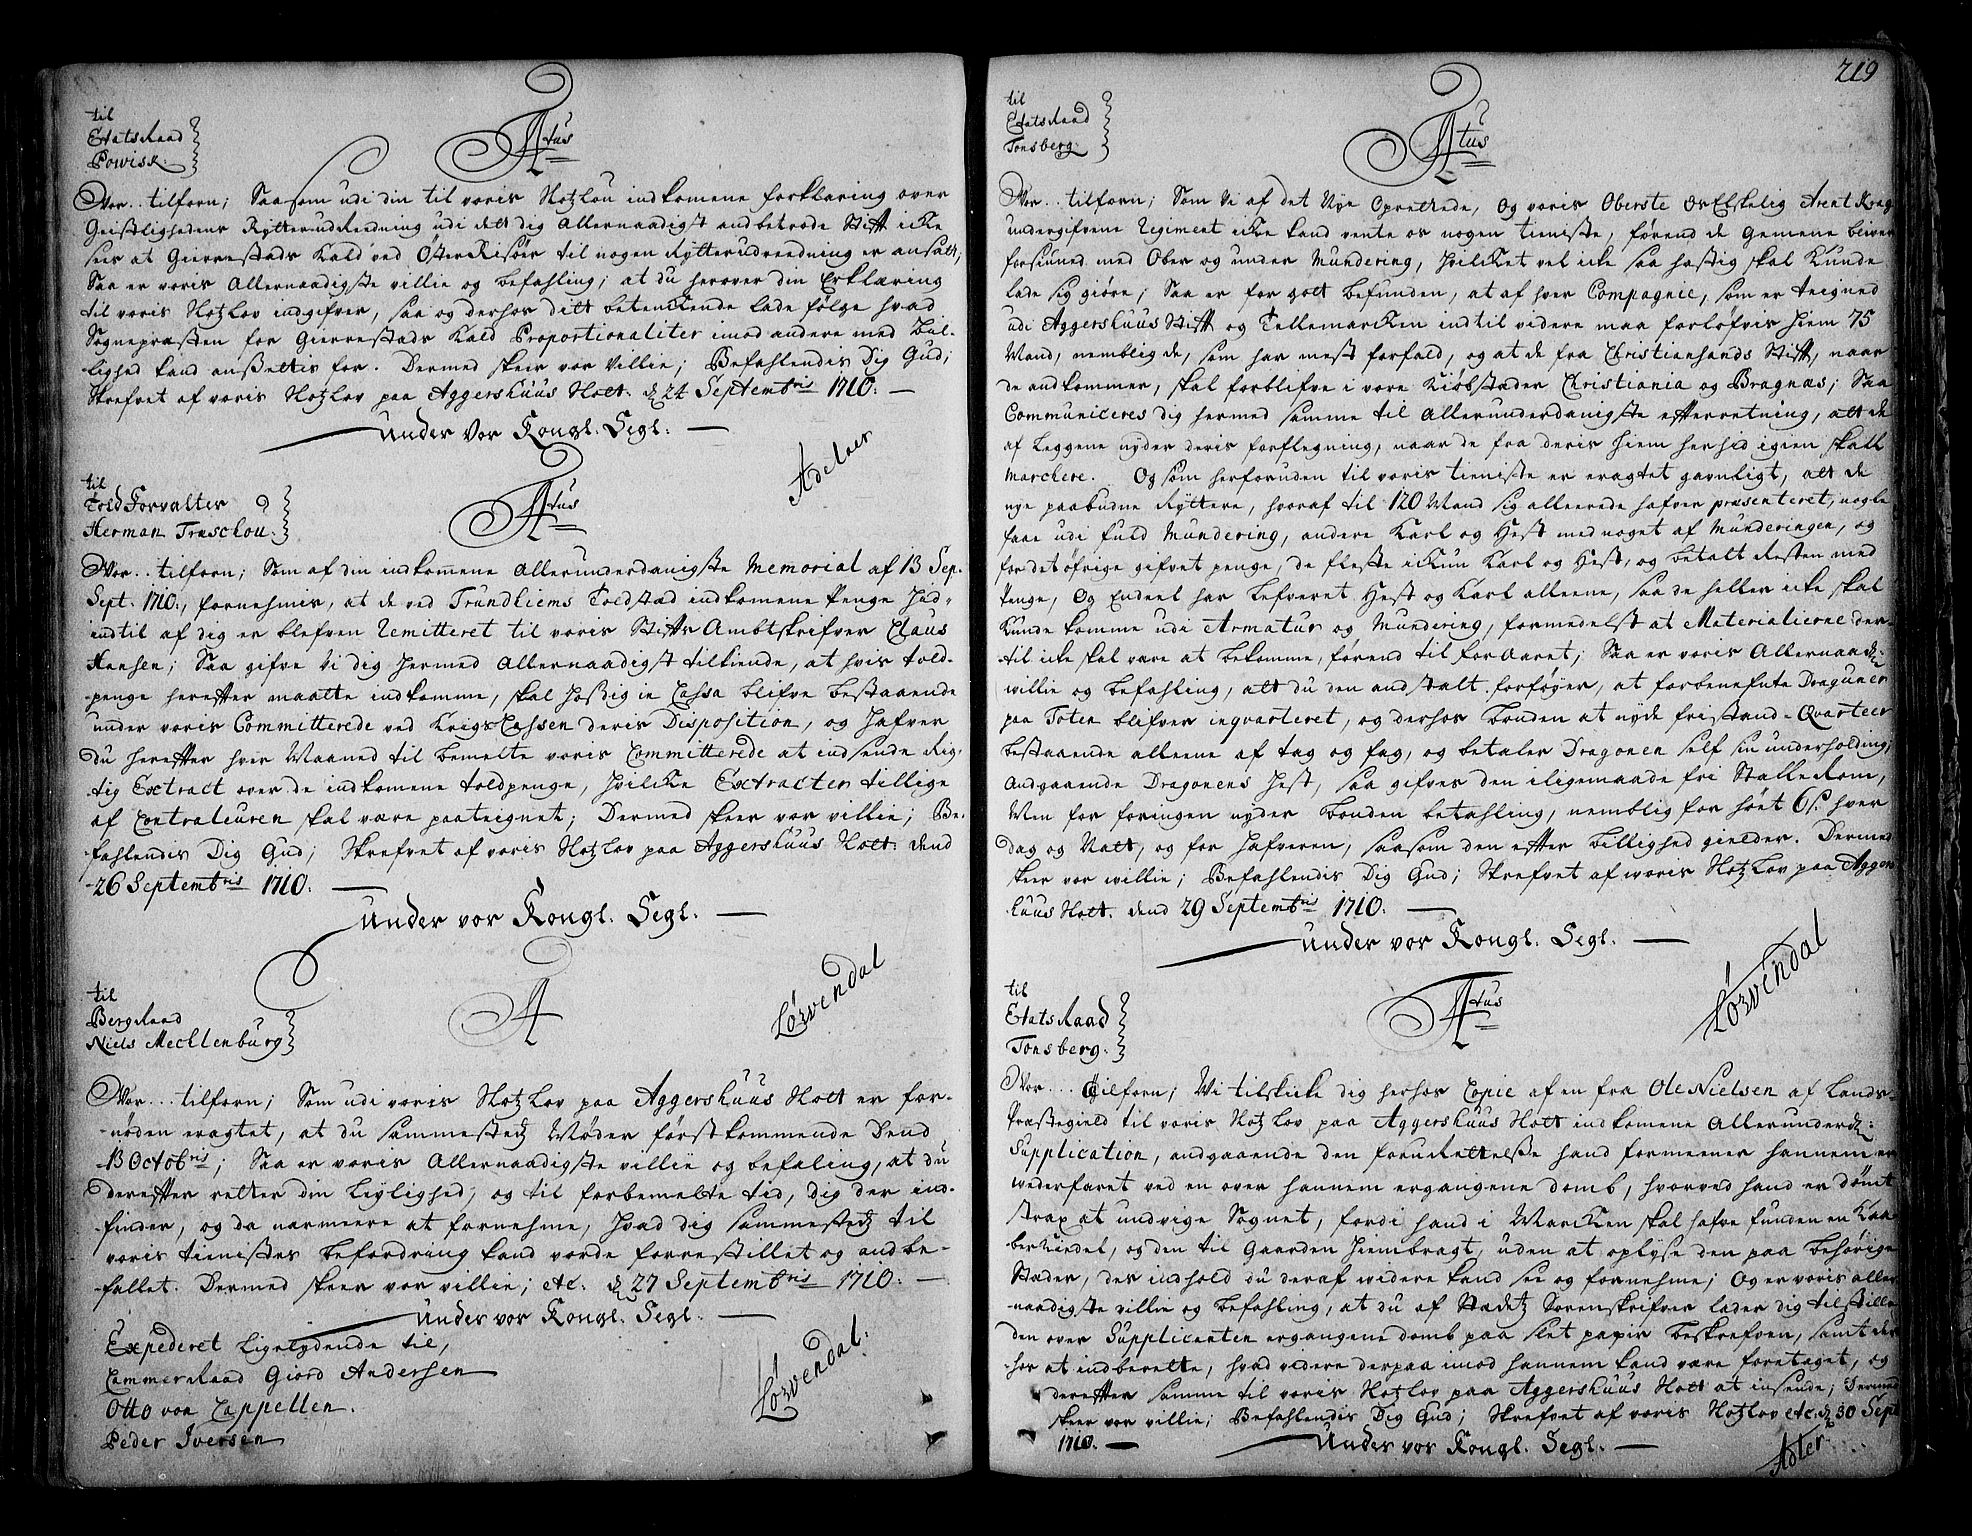 til
EtatsRaad
Powisk.
Atus
Vor... tilforn; Saasom udi din til voris Slotzlou indkomene forklaring over
Geistlighedens Rytterudreedning udi dett dig Allernaadigst anbetrode Stifft icke
sees at Gierrestads Kald ved OsterRisöer til nogen Rytterudreedning er ansatt,
Saa er voris Allernaadigste villie og befahling; at du herover din Erklæring
til voris Slotzlov indgifver, saa og derhos ditt betenckende lade følge hvad
Sognepræsten for Gierrestads Kald Proportionaliter imod andere med bil-
-lighed kand ansettis for. Dermed skeer vor Villie; Befahlendis Dig Gud;
Skrefvet af voris Slotzlov paa Aggershuus Slott. d 24 Septembris 1710. —
Under Vor Kongl. Segl. —
Adelaer
til
Told Forvalter
Herman Treschou.
Atus
Vor... tilforn; Som af din indkomene Allerunderdanigste Memorial af 13 Sep.
Sept. 1710., fornehmis, at de ved Trundhiems Toldstæd indkomene Penge hid-
indtil af dig er blefven Remitteret til voris Stiffts Ambtskrifver Claus
Hansen; Saa gifve Vi dig hermed Allernaadigst tilkiende, at hvis told-
-penge hereffter maatte indkomme, skal hossig in Cassa blifve bestaaende
under voris Committerede ved KrigsCassen deris Disposition, og hafver
du hereffter hver Maaned til bemelte voris Committerede at indsende Rig-
tig Extract over de indkomene toldpenge, hvilcke Extracter tillige
af Contraleuren skal være paateignet; Dermed skeer vor villie; Be-
fahlendis Dig Gud; Skrefvet af voris Slotzlov paa Aggershuus Slott. dend
26 Septembris 1710. —
Under vor Kongl. Segl. —
Lövendal
til
BergRaad
Niels Mechlenburg
A
Vor... tilforn; Som udi voris Slotzlov paa Aggershuus Slott er for-
-nöden eragtet, at du sammestedz Møder førstkommende Dend
13 Octobris; Saa er voris Allernaadigste villie og befaling, at du
dereffter retter din leylighed, og til forbemelte tid, dig der ind-
-finder, og da narmeere at fornehme, hvad dig sammestedz til
voris tienistes befordring kand vorde forrestillet og anbe-
-fallet. Dermed skeer vor villie; etc. d 27 Septembris 1710. —
Under vor Kongl. Segl. —
Expederet Ligelydende til,
CammerRaad Giord Andersen
Otto von Cappellen.
Peder Iversen
Lövendal.
219
til
EtatsRaad
Tonsberg.
Atus
Vor... tilforn; Som Vi af det Nye Oprettede, Og voris Oberste OsElskelig Arent Krag
undergifvene Regiment icke kand vente os nogen tieniste, förend de Gemene blifver
forsiuned med Ober og under Mundering, hvilcket vel icke saa hastig skal kunde
lade sig giöre; Saa er for gott befunden, at af hver Compagnie, som er tregned
udi Aggershuus Stifft og Tellemarcken indtil videre maa forlöfvis hiem 75
Mand, nemblig de, som har mest forfald, og at de fra Christiansands Stifft, naar
de ankommer, skal forblifve i vore Kiöbstæder Christiania og Bragnæs; Saa
Communiceres dig hermed samme til Allerunderdanigste effterretning, att de
af Leggene nyder deris forflegning, naar de fra deris hiem herhid igien skall
Marchere. Og som herforuden til voris tieniste er eragtet gavnligt, att de
nye paabudne Ryttere, hvoraf til 120 Mand sig allerede hafver præsenteret, nogle
faae udi fuld Mundering, andere Karl og Hest med noget af Munderingen, og
for det öfrige gifvet penge, de fleste ickun Karl og Hest, og betalt Resten med
Penge, Og Endeel har Lefveret Hest og Karl alleene, saa de heller icke skal
kunde komme udi Armatur og Mundering, formedelst at Materialierne der-
-til icke skal være at bekomme, förend til forAaret; Saa er voris Allernaad:
willie og befahling, att du den anstalt forføyer, at forbenefnte Dragoner
paa Toten blifver inqvarteret, og derhos bonden at nyde fristand-Qvarteer
bestaaende alleene af tag og fag, og betaler Dragonen self sin underholding,
Andgaaende Dragonens hest, saa gifves den iligemaade fri StalleRom,
Men for foringen nyder bonden betahling, nemblig for höet 6 s. hver
dag og Natt, og for hafveren, saasom den effter billighed gielder. Dermed
skeer vor willie; Befahlendis Dig Gud; Skrefvet af woris Slotzlov paa Agger
huus Slott. dend 29 Septembris 1710. —
Under vor Kongl. Segl. —
Lövendal
til
EtatsRaad
Tonsberg.
Atus
Vor... tilforn; Vi tilskicke dig herhos Copie af en fra Ole Nielsen af Lands-
Præstegield til voris Slotzlov paa Aggershuus Slott indkomene Allerunderd:
Supplication, andgaaende den foruRettelse hand formeener hannem er
wederfaret ved en over hannem ergangene domb, hvorved hand er dömt
strax at undvige Sognet, fordi hand i Marcken skal hafve funden en Kaa-
berKiedel, og den til Gaarden hiembragt, uden at oplyse den paa behörige
Stæder, des indhold du deraf widere kand see og fornehme; Og er voris aller
-naadigste villie og befahling, at du af Stædetz Sorenskrifver lader dig tilstille
den over Supplicanten ergangene domb paa slet papir beskrefven, samt der
-hos at indberette, hvad videre derpaa imod hannem kand være foretaget, og
dereffter samme til voris Slotzlov paa Aggershuus Slott at insende; Dermed
skeer vor villie; Befahlendis Dig Gud; Skrefvet af voris Slotzlov etc. d 30 Sept
1710. —
Under vor Kongl. Segl. —
Adler